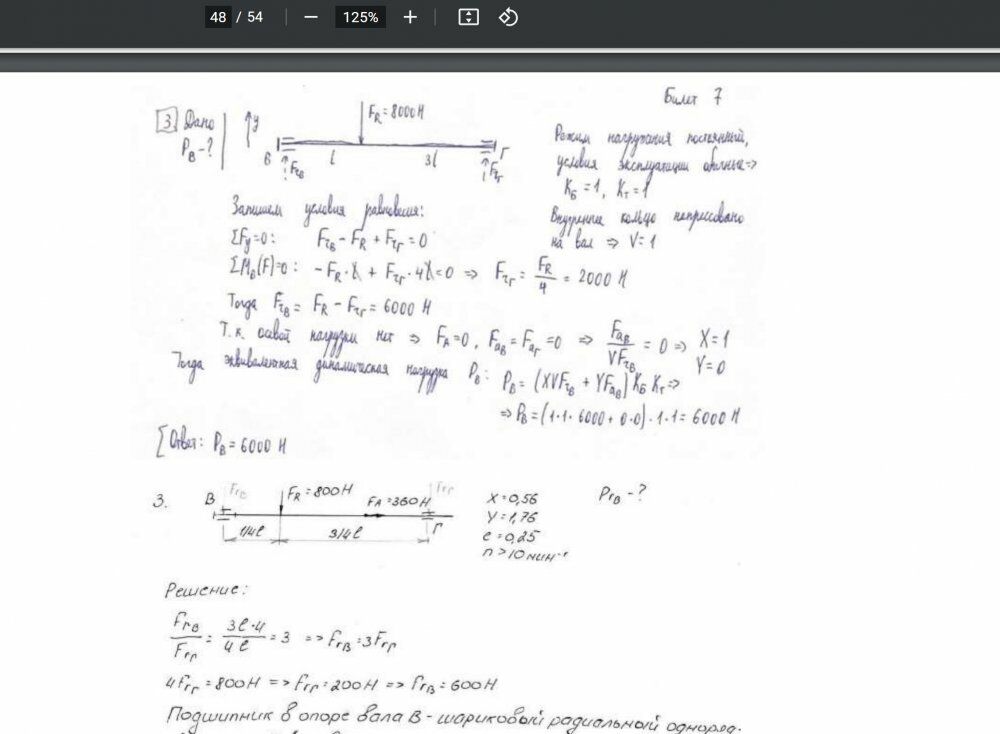 48 / 54
125%
Билет 7
3. Дано
P_B - ?
y
F_R = 8000 Н
B
F_rB
l
3l
Г
F_rГ
Режим нагружения постоянный,
условия эксплуатации обычные =>
K_Б = 1, K_T = 1
Внутреннее кольцо напрессовано
на вал => V = 1
Запишем условия равновесия:
ΣF_y = 0: F_rB - F_R + F_rГ = 0
ΣM_B(F) = 0: -F_R · l + F_rГ · 4l = 0 => F_rГ = F_R / 4 = 2000 Н
Тогда F_rB = F_R - F_rГ = 6000 Н
Т.к. осевой нагрузки нет => F_A = 0, F_aB = F_aГ = 0 => F_aB / VF_rB = 0 => X = 1
Y = 0
Тогда эквивалентная динамическая нагрузка P_B: P_B = (XVF_rB + YF_aB) K_Б K_T =>
=> P_B = (1·1·6000 + 0·0)·1·1 = 6000 Н
Ответ: P_B = 6000 Н
3.
B
F_rB
F_R = 800 Н
F_A = 360 Н
F_rГ
Г
1/4 l
3/4 l
X = 0,56
Y = 1,76
e = 0,25
n > 10 мин⁻¹
P_rB - ?
Решение:
F_rB / F_rГ = 3l·4 / 4l = 3 => F_rB = 3F_rГ
4F_rГ = 800 Н => F_rГ = 200 Н => F_rB = 600 Н
Подшипник в опоре вала В - шариковый радиальный однoряд-